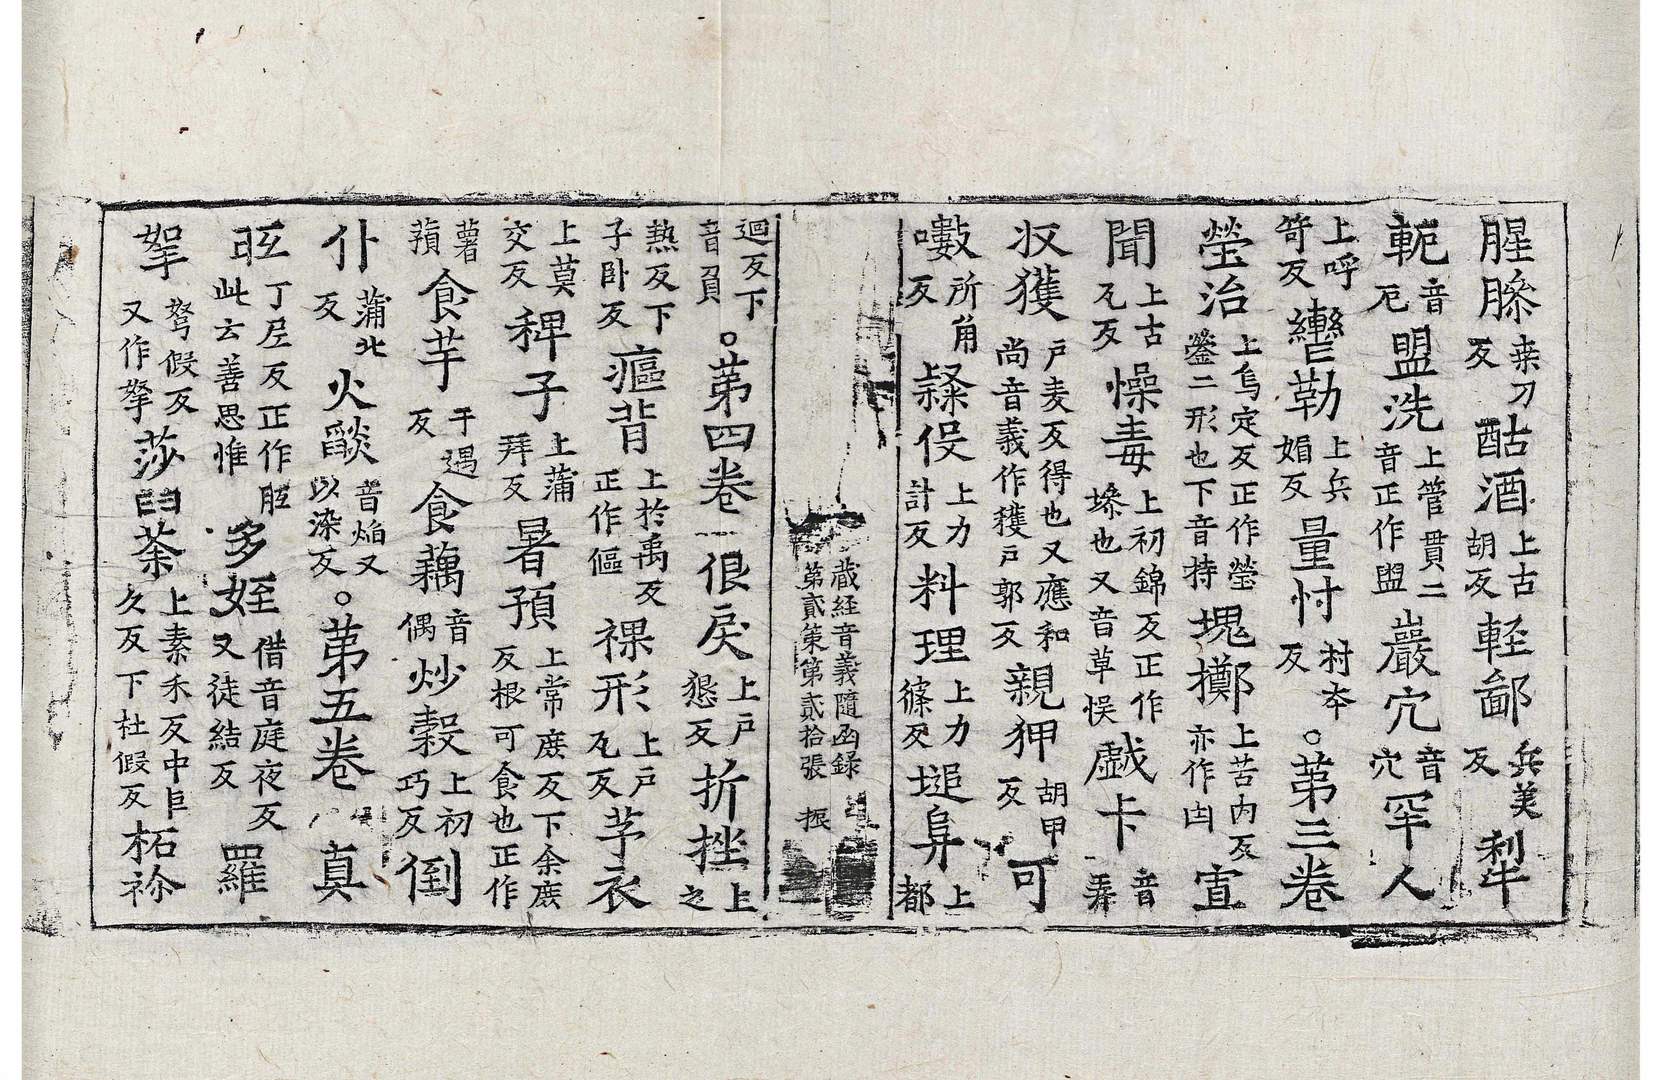 腥臊桒刀反酤酒上古胡反輕鄙兵美反犁
軛音厄盥洗上管貫二音正作盥巖宂音穴罕人
上呼苛反轡勒上兵媚反量忖村夲反。苐三卷
瑩治上烏定反正作瑩鎣二形也下音持塊擲上苦内反亦作凷𡧳
聞上古瓦反懆毒上初錦反正作墋也又音草悮戲卡音弄可
収獲戸麦反得也又應和尚音義作穫戸郭反親狎胡甲反
嗽所角反隸伇上力計反料理上力篠反塠𠂤上都
蔵経音義隨函録
第貳筞第貳拾張 振
迴反下音負。苐四卷佷戾上戸懇反折挫上之
熱反下子卧反傴背上於禹反正作傴裸形上戸瓦反芧衣
上莫交反稗子上蒲拜反暑預上常庻反下余庻反根可食也正作
薯蕷食芋于遇反食藕音偶炒糓上初巧反倒
仆蒲北反火燄音焔又以染反。苐五卷 真
眐丁㞐反正作眐此云善思惟多姪借音庭夜反又徒結反羅
拏駑假反又作拏莎𦥑荼上素禾反中𦥑久反下杜假反柘袊